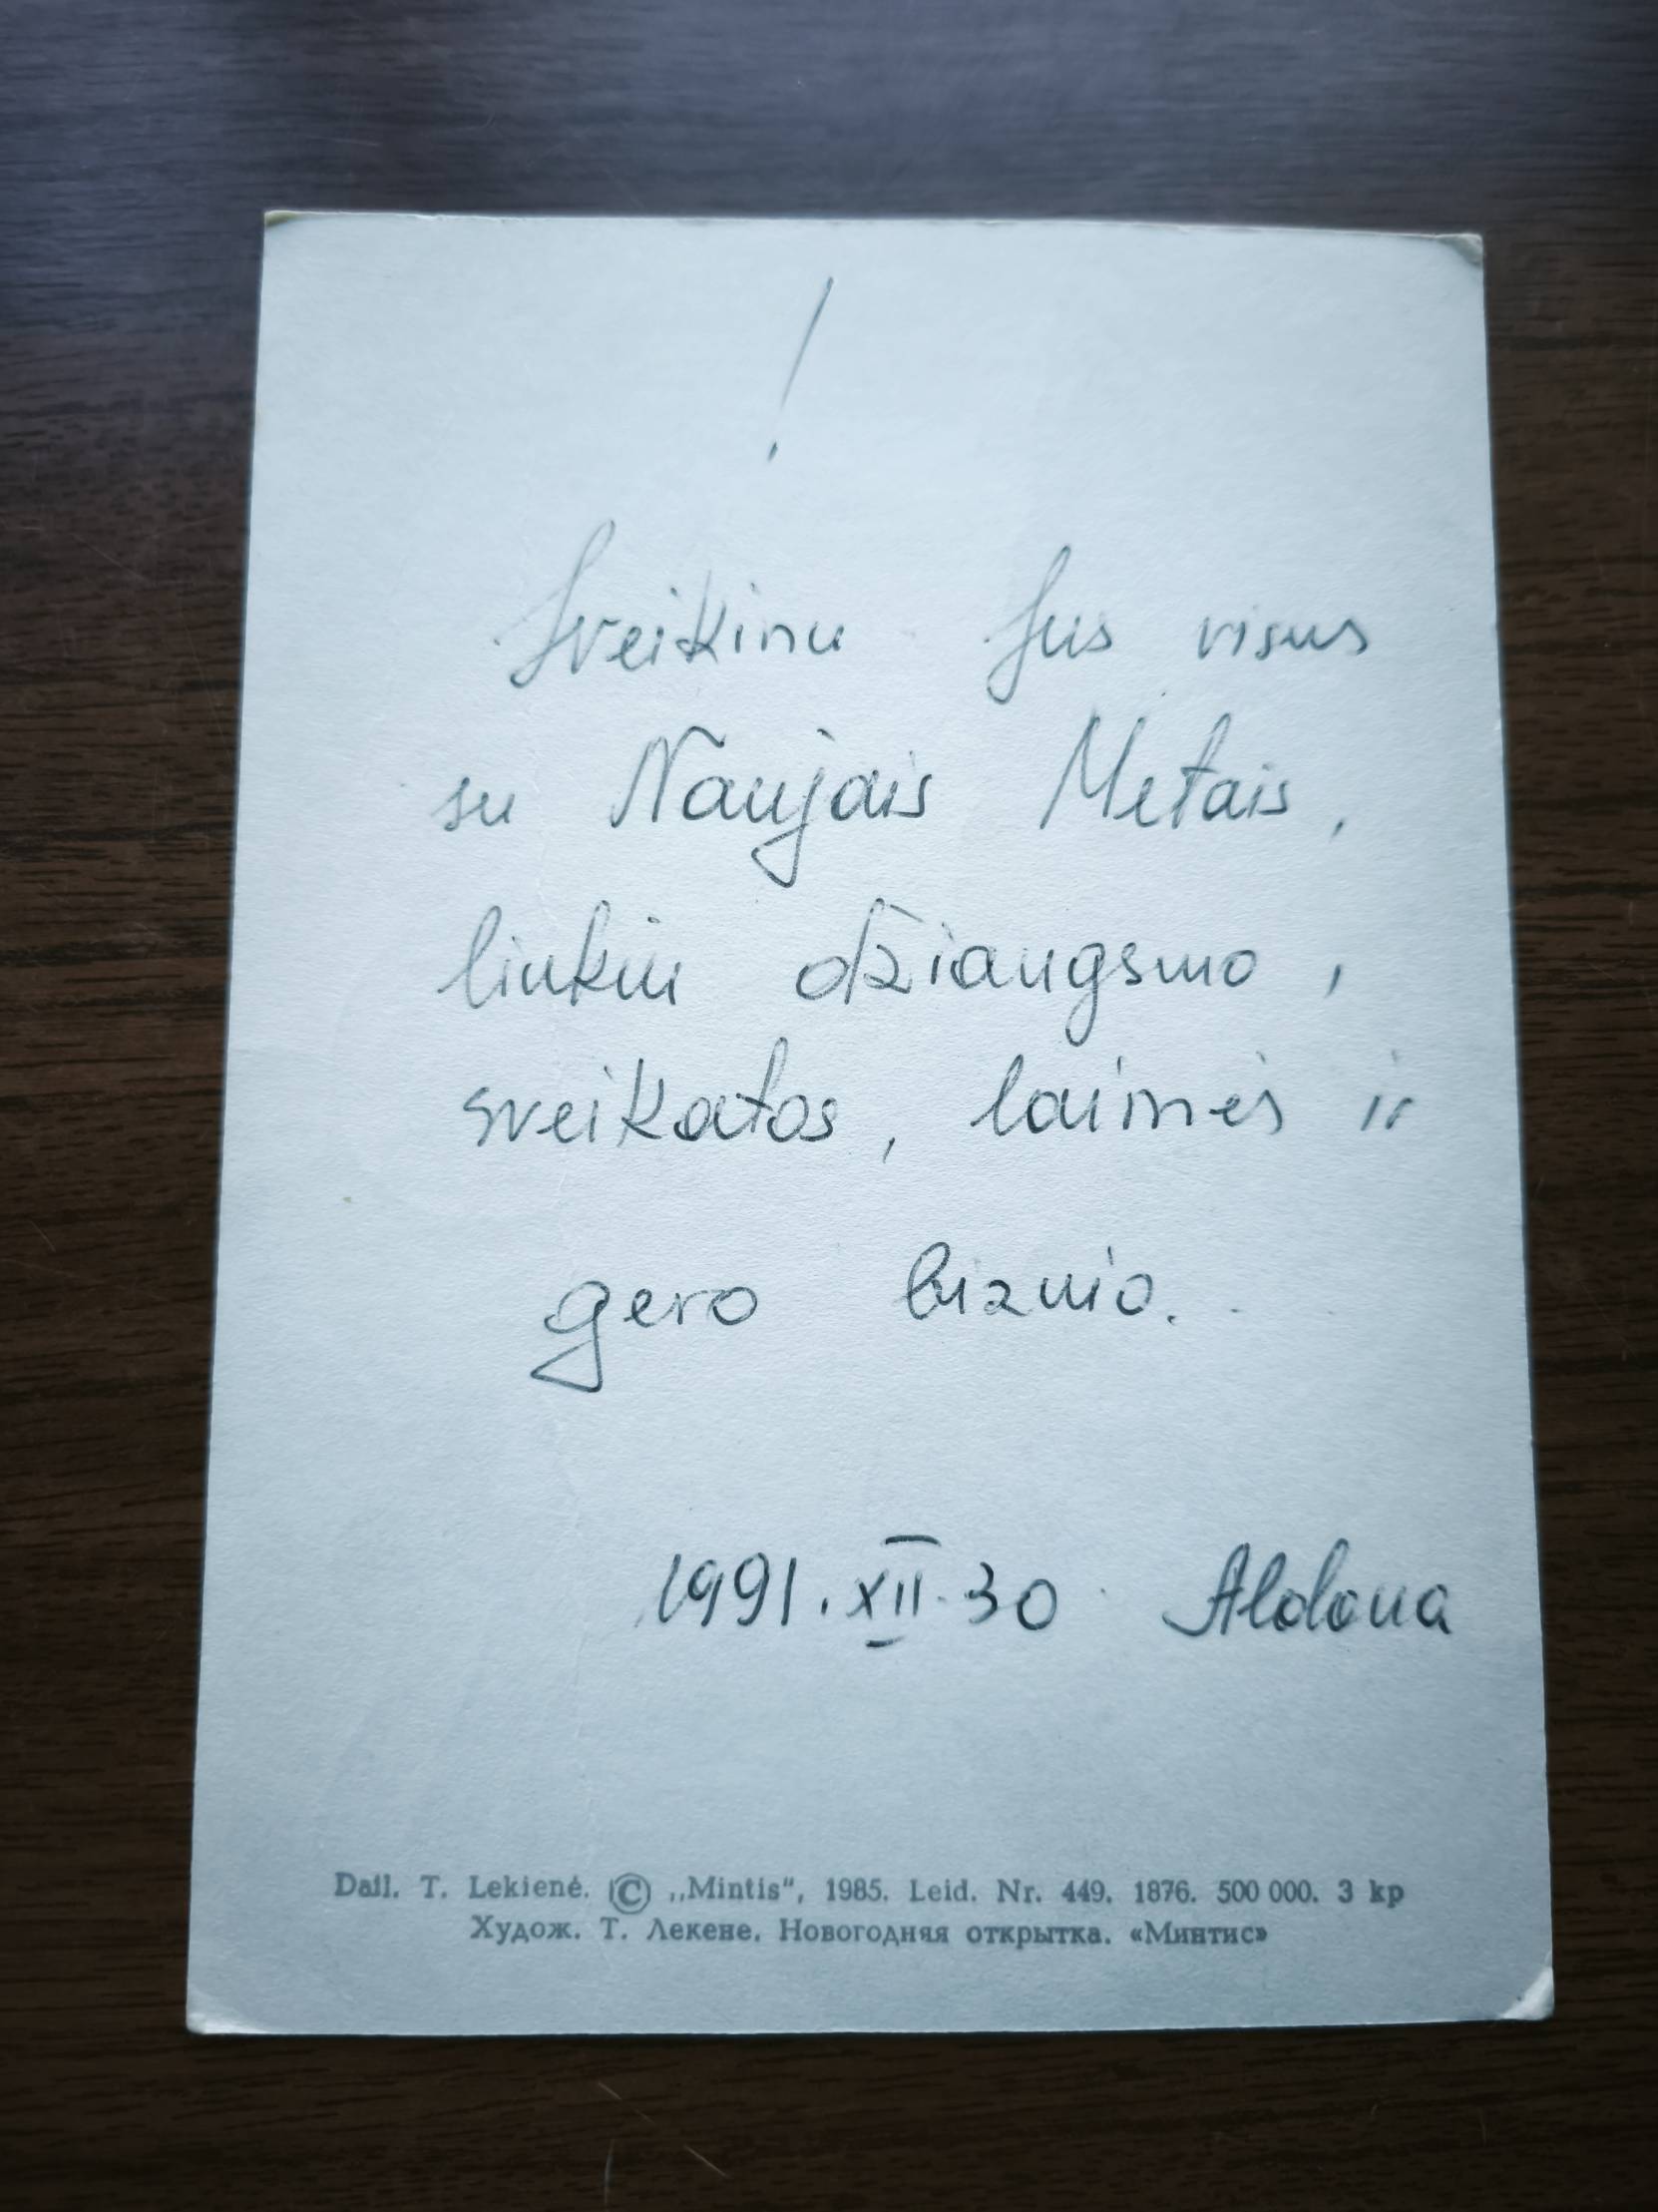 !
Sveikinu Jus visus
su Naujais Metais,
linkiu džiaugsmo,
sveikatos, laimės ir
gero biznio.
1991.XII.30 Aldona
Dail. T. Lekienė. © „Mintis“, 1985. Leid. Nr. 449. 1876. 500 000. 3 kp
Худож. Т. Лекене. Новогодняя открытка. «Минтис»